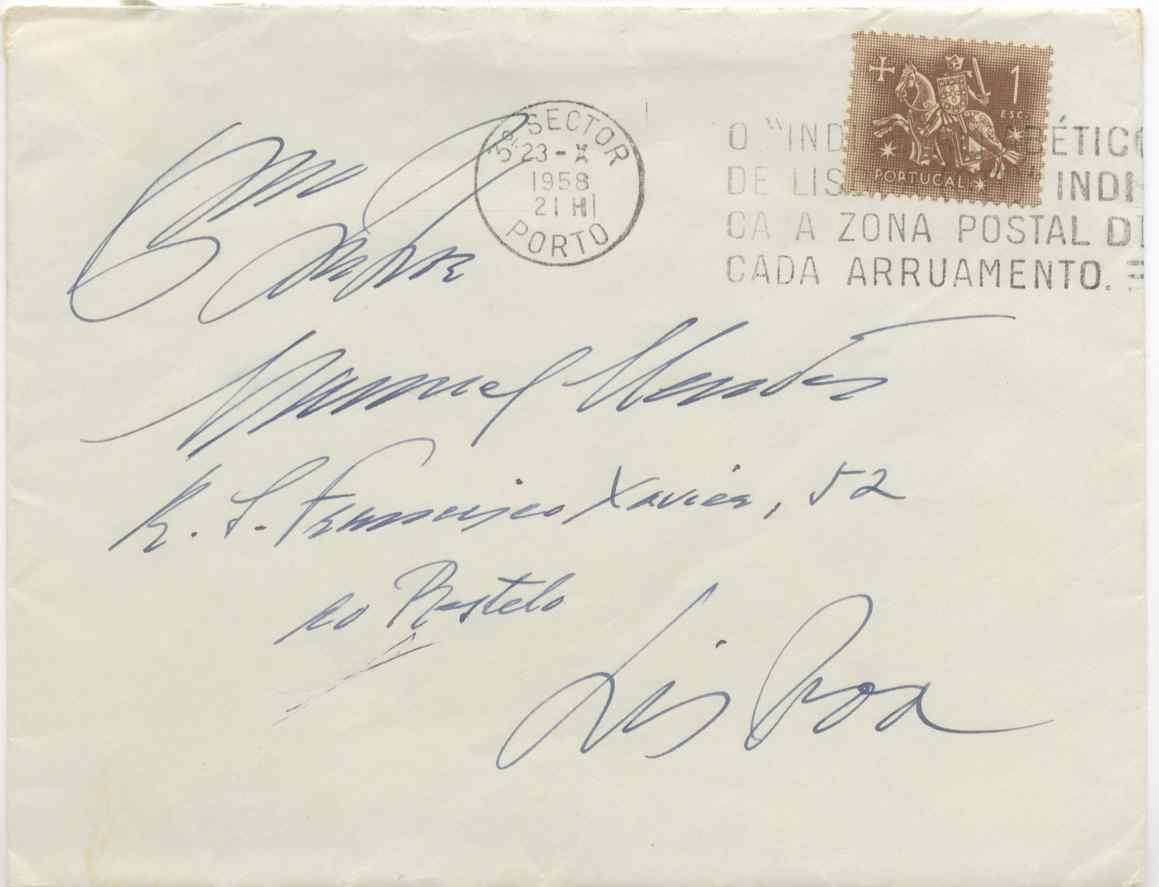 3º SECTOR
23-X
1958
21 H
PORTO
1
ESC.
PORTUGAL
O "IND ... BÉTICO
DE LIS ... INDI-
CA A ZONA POSTAL DE
CADA ARRUAMENTO.
Exmo
Senhor
Manuel Mendes
R. S. Francisco Xavier, 52
ao Restelo
Lisboa